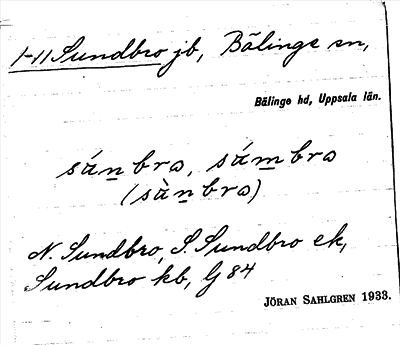 1-11 Sundbro jb, Bälinge sn,
Bälinge hd, Uppsala län.
sánbrɷ, sámbrɷ
(sànbrɷ)
N. Sundbro, S. Sundbro ek,
Sundbro kb, G 84
JÖRAN SAHLGREN 1933.